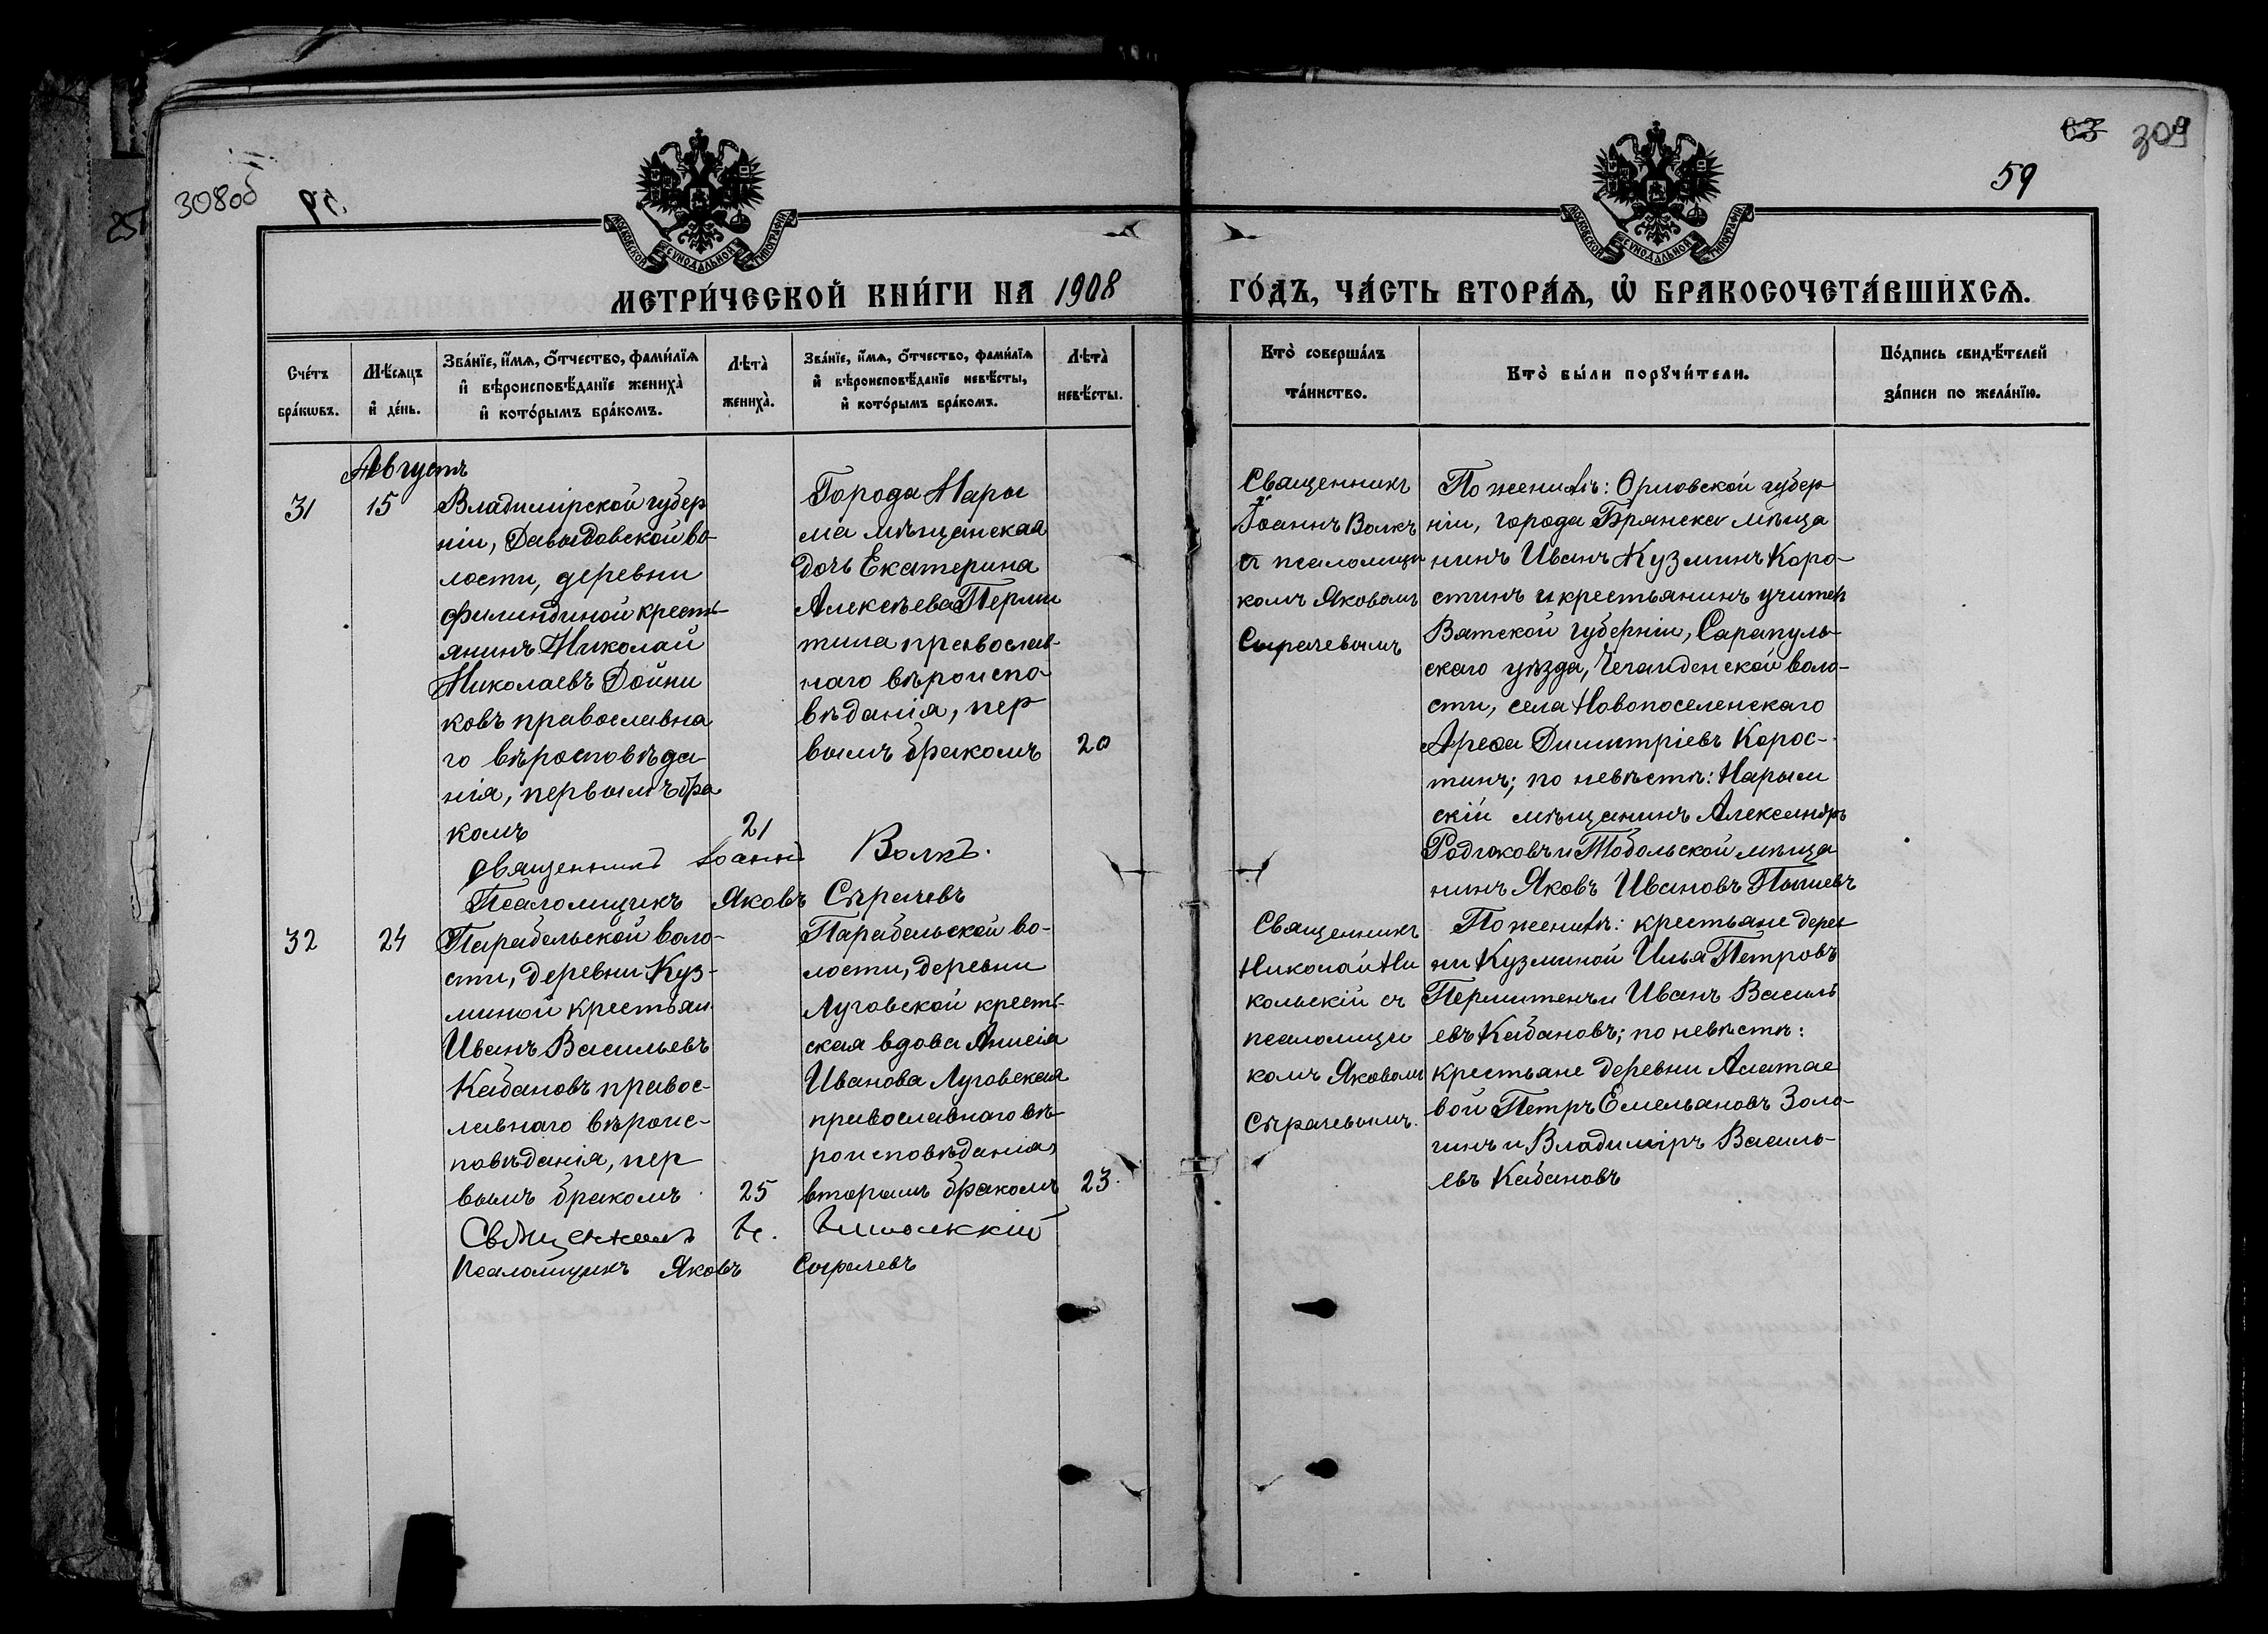 308об
59
63 309
59
МОСКОВСКОЙ СѴНОДАЛЬНОЙ ТИПОГРАФІИ
МОСКОВСКОЙ СѴНОДАЛЬНОЙ ТИПОГРАФІИ
МЕТРИ́ЧЕСКОЙ КНИ́ГИ НА 1908
ГО́ДЪ, ЧА́СТЬ ВТОРА́Ѧ, Ѡ҆ БРАКОСОЧЕТА́ВШИХСѦ.
Сче́тъ
бра́кѡвъ.
Мѣ́сяцъ
и҆ де́нь.
Зва́нїе, и҆́мѧ, ѻ҆́тчество, фами́лїѧ
и҆ вѣроисповѣ́данїе жениха̀
и҆ кото́рымъ бра́комъ.
Лѣта̀
жениха̀.
Зва́нїе, и҆́мѧ, ѻ҆́тчество, фами́лїѧ
и҆ вѣроисповѣ́данїе невѣ́сты,
и҆ кото́рымъ бра́комъ.
Лѣта̀
невѣ́сты.
Кто̀ соверша́лъ
та́инство.
Кто̀ бы́ли порꙋчи́тели.
По́дпись свидѣ́телей
за́писи по жела́нїю.
Августъ
31
15
Владимірской губер
ніи, Давыдовской во-
лости, деревни
Филиндиной кресть-
янинъ Николай
Николаевъ Дойни
ковъ православна
го вѣроисповѣда
нія, первымъ бра
комъ
21
Города Нары
ма мѣщанская
дочь Екатерина
Алексѣева Перми
тина православ-
наго вѣроиспо-
вѣданія, пер
вымъ бракомъ
20
Священникъ
Іоаннъ Волкъ
съ псаломщи
комъ Яковомъ
Сырачевымъ
По женихѣ: Орловской губер
ніи, города Брянска мѣща
нинъ Иванъ Кузминъ Коро-
стинъ и крестьянинъ учитель
Вятской губерніи, Сарапуль-
скаго уѣзда, Чегандинской воло-
сти, села Новопоселенскаго
Арефа Димитріевъ Корос-
тинъ; по невѣстѣ: Нарым
скій мѣщанинъ Александръ
Родюковъ и Тобольской мѣща
нинъ Яковъ Ивановъ
Священникъ Іоаннъ Волкъ.
Псаломщикъ Яковъ Сырачевъ
32
24
Парабельской воло-
сти, деревни Куз-
миной крестьян.
Иванъ Васильевъ
Кабановъ правос-
лавнаго вѣроис-
повѣданія, пер
вымъ бракомъ
25
Парабельской во-
лости, деревни
Луговской кресть-
ская вдова Анисія
Иванова Луговская
православнаго вѣ-
роисповѣданія,
вторымъ бракомъ
23.
Священникъ
Николай Ни
кольскій съ
псаломщи
комъ Яковомъ
Сырачевымъ.
По женихѣ: крестьяне дерев
ни Кузминой Илья Петровъ
Пермитенъ и Иванъ Василь
евъ Кабановъ; по невѣстѣ:
крестьяне деревни Алатае
вой Петръ Емельяновъ Золо-
гинъ и Владиміръ Василь-
евъ Кабановъ
Священникъ Н. Никольскій
Псаломщикъ Яковъ Сырачевъ